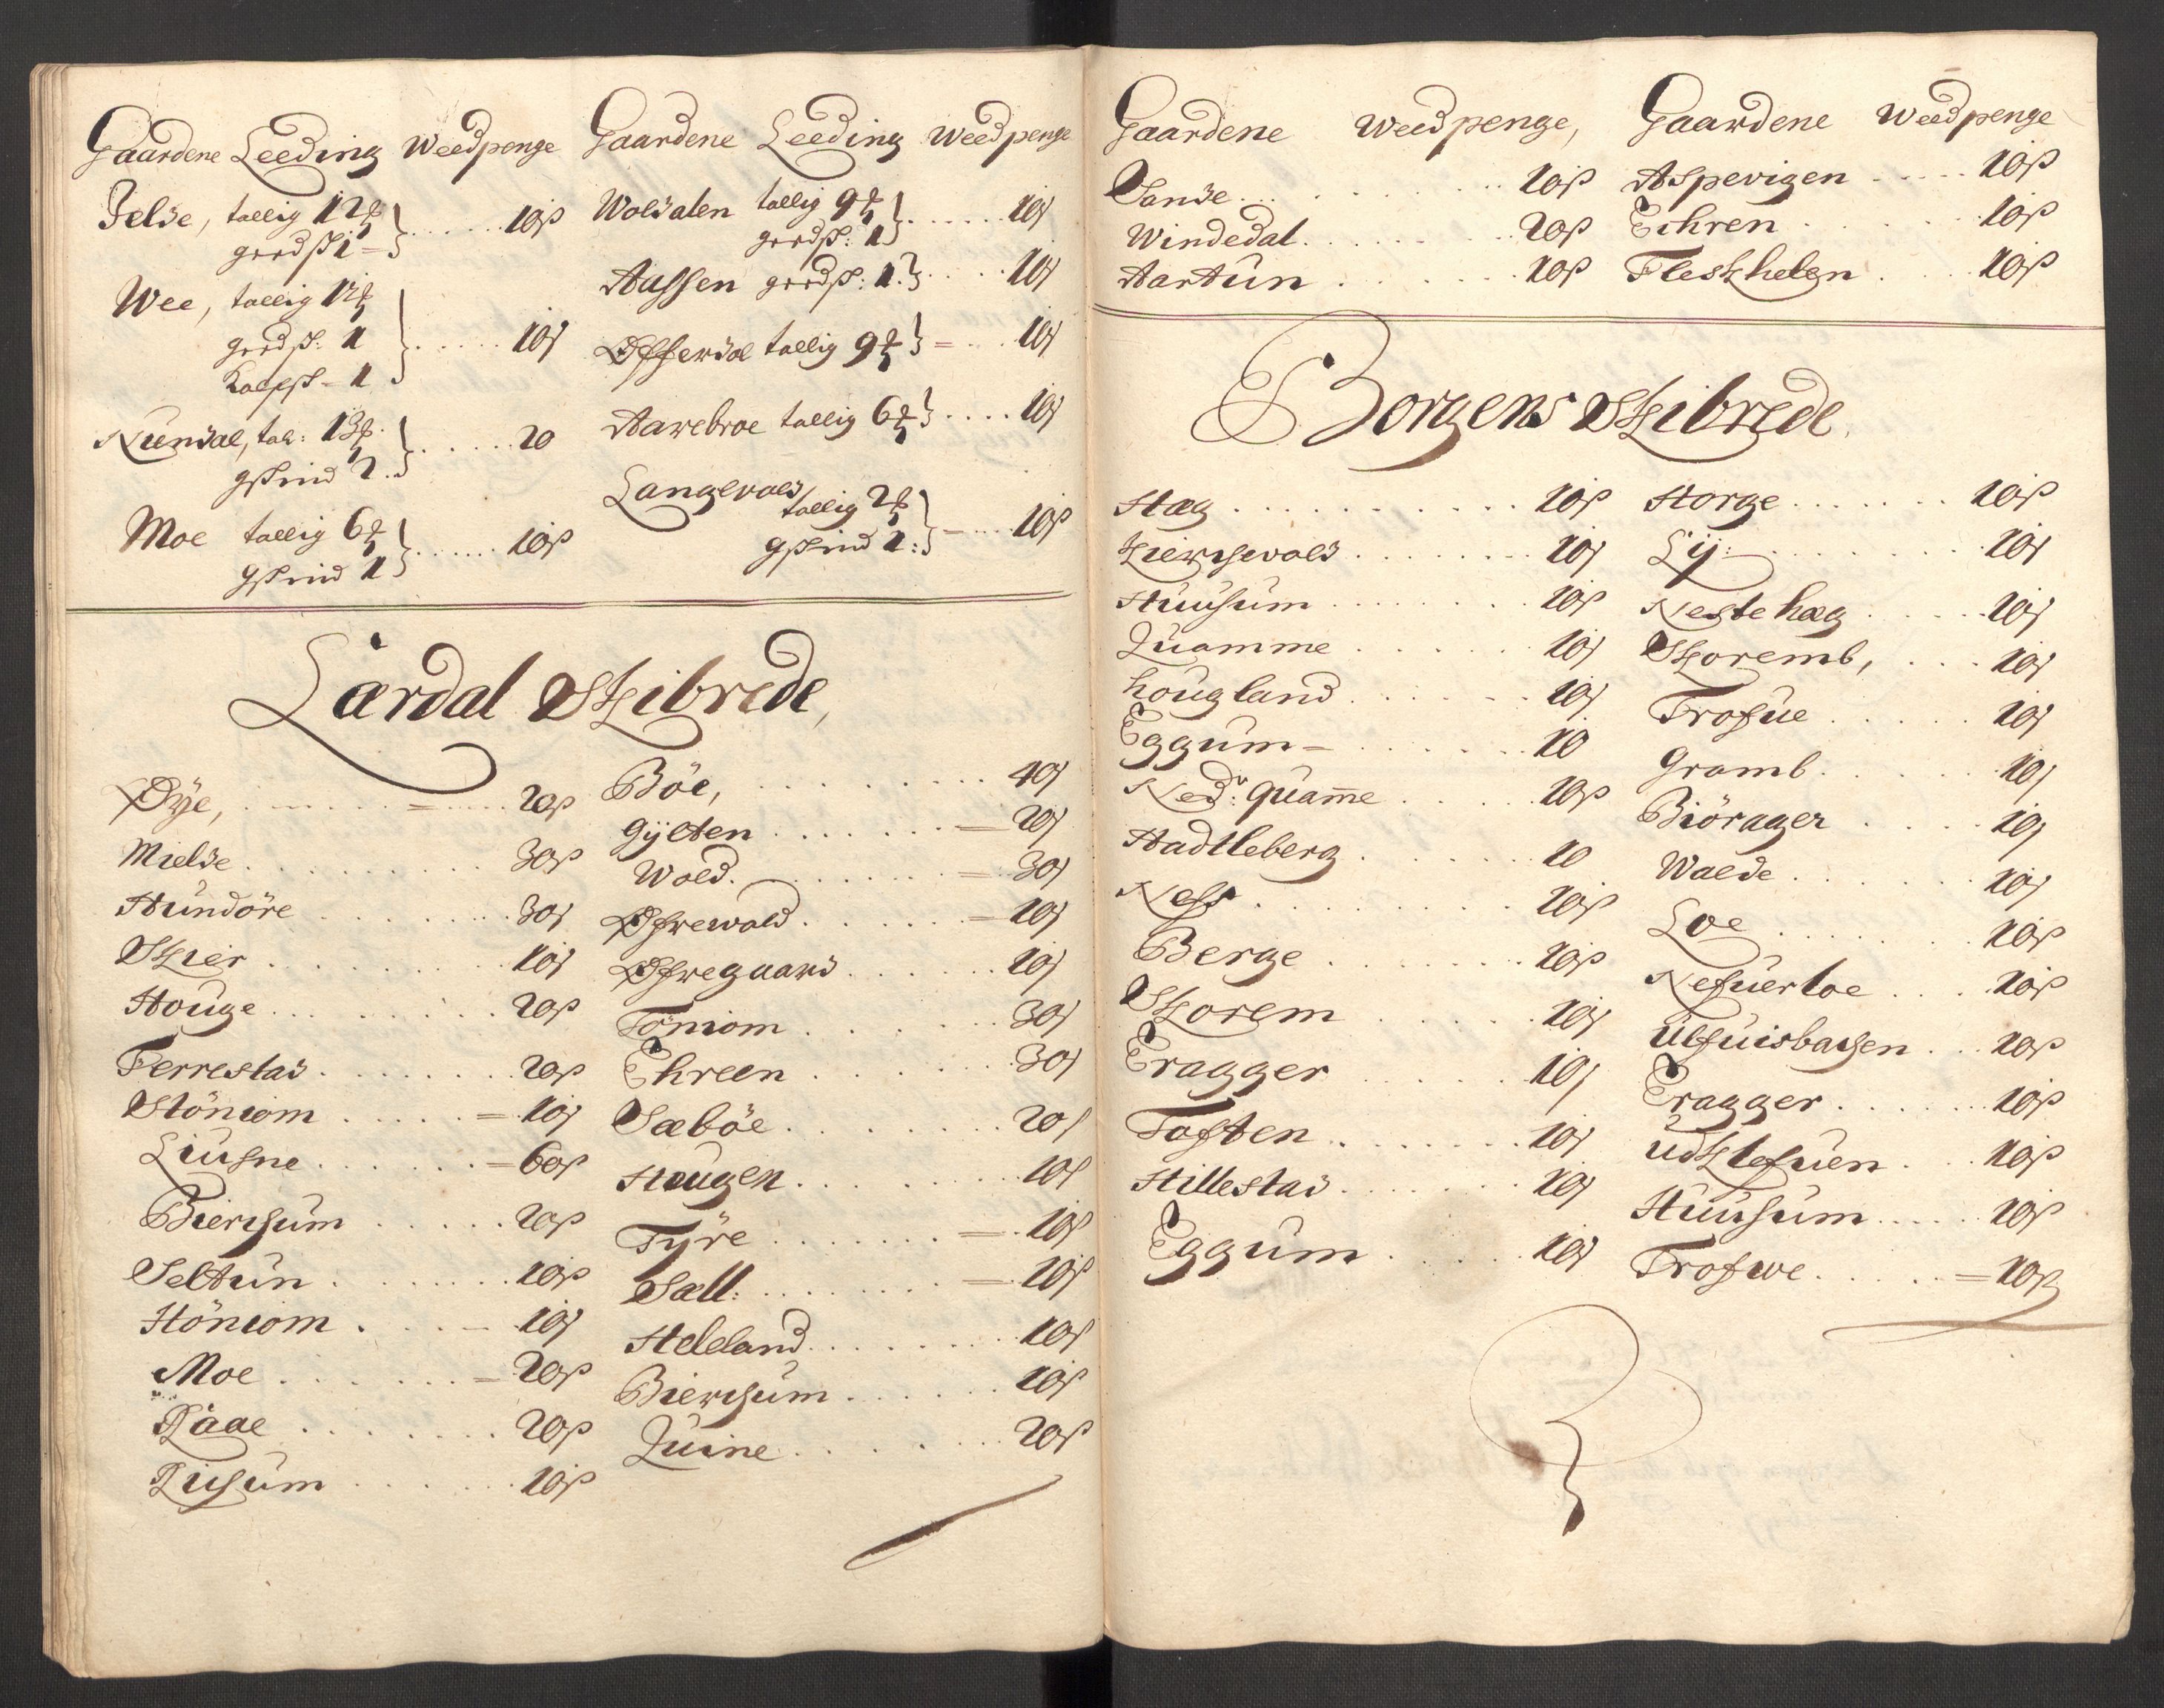 Gaardene Leeding Weedpenge
Jelde, tallig 12 ₰
gerdß 1 = 10ß
Wee, tallig 12 ₰
gerdß: 1
Kalfß - 1 10ß
Nundal, tal: 13 ₰
gßind 2. 20
Moe tallig 6 ₰
gßind 1 10ß
Gaardene Leeding Weedpenge
Woldalen tallig 9 ₰
gerdß: 1 10ß
Aassen gerdß: 1. 10ß
Øfferdal tallig 9 ₰ = 10ß
Aarebroe tallig 6 ₰ 10ß
Langevold
tallig 2 ₰
gßind 1: 10ß
Lærdal Skibrede,
Øÿe, 20ß
Mielde 30ß
Hundöre 30ß
Skier 10ß
Houge 20ß
Ferrestad 20ß
Stöniom = 10ß
Liusne = 60ß
Bierchum 20ß
Seltun 10ß
Höniom 10ß
Moe = 20ß
Raae 20ß
Riusum 10ß
Böe, 40ß
Gÿlten = 20ß
Wold = 30ß
Øfrewold = 10ß
Øfregaard 10ß
Töniom 30ß
Ehreen 30ß
Sæböe 20ß
Haugen 10ß
Tÿre = 10ß
Sæll: = 10ß
Heleland 10ß
Bierchum 10ß
Quine 20ß
Gaardene Weedpenge,
Sande 10ß
Windedal 20ß
Aartun 10ß
Gaardene Weedpenge
Aspevigen 10ß
Echren 10ß
Fleskhelen 10ß
Borgens Skibrede,
Hæg 10ß
Kierchevold 10ß
Huusum 10ß
Quamme 10ß
Hougland 10ß
Eggum - 10
Nedr: quam̄e 10ß
Hadtleberg 10
Ness 10ß
Berge 10ß
Skorem 10ß
Eragger 10ß
Toften 10ß
Hillestad 10ß
Eggum 10ß
Horge 10ß
Lÿ: 10ß
Neste hæg 10ß
Skoremb, 10ß
Trofue 10ß
Gramb 10ß
Biörager 10ß
Walde 10ß
Loe 10ß
Nefuerloe 10ß
Ulfuisbachen 10ß
Eragger 10ß
Udklefuen 10ß
Huusum 10ß
Trofwe = 10ß